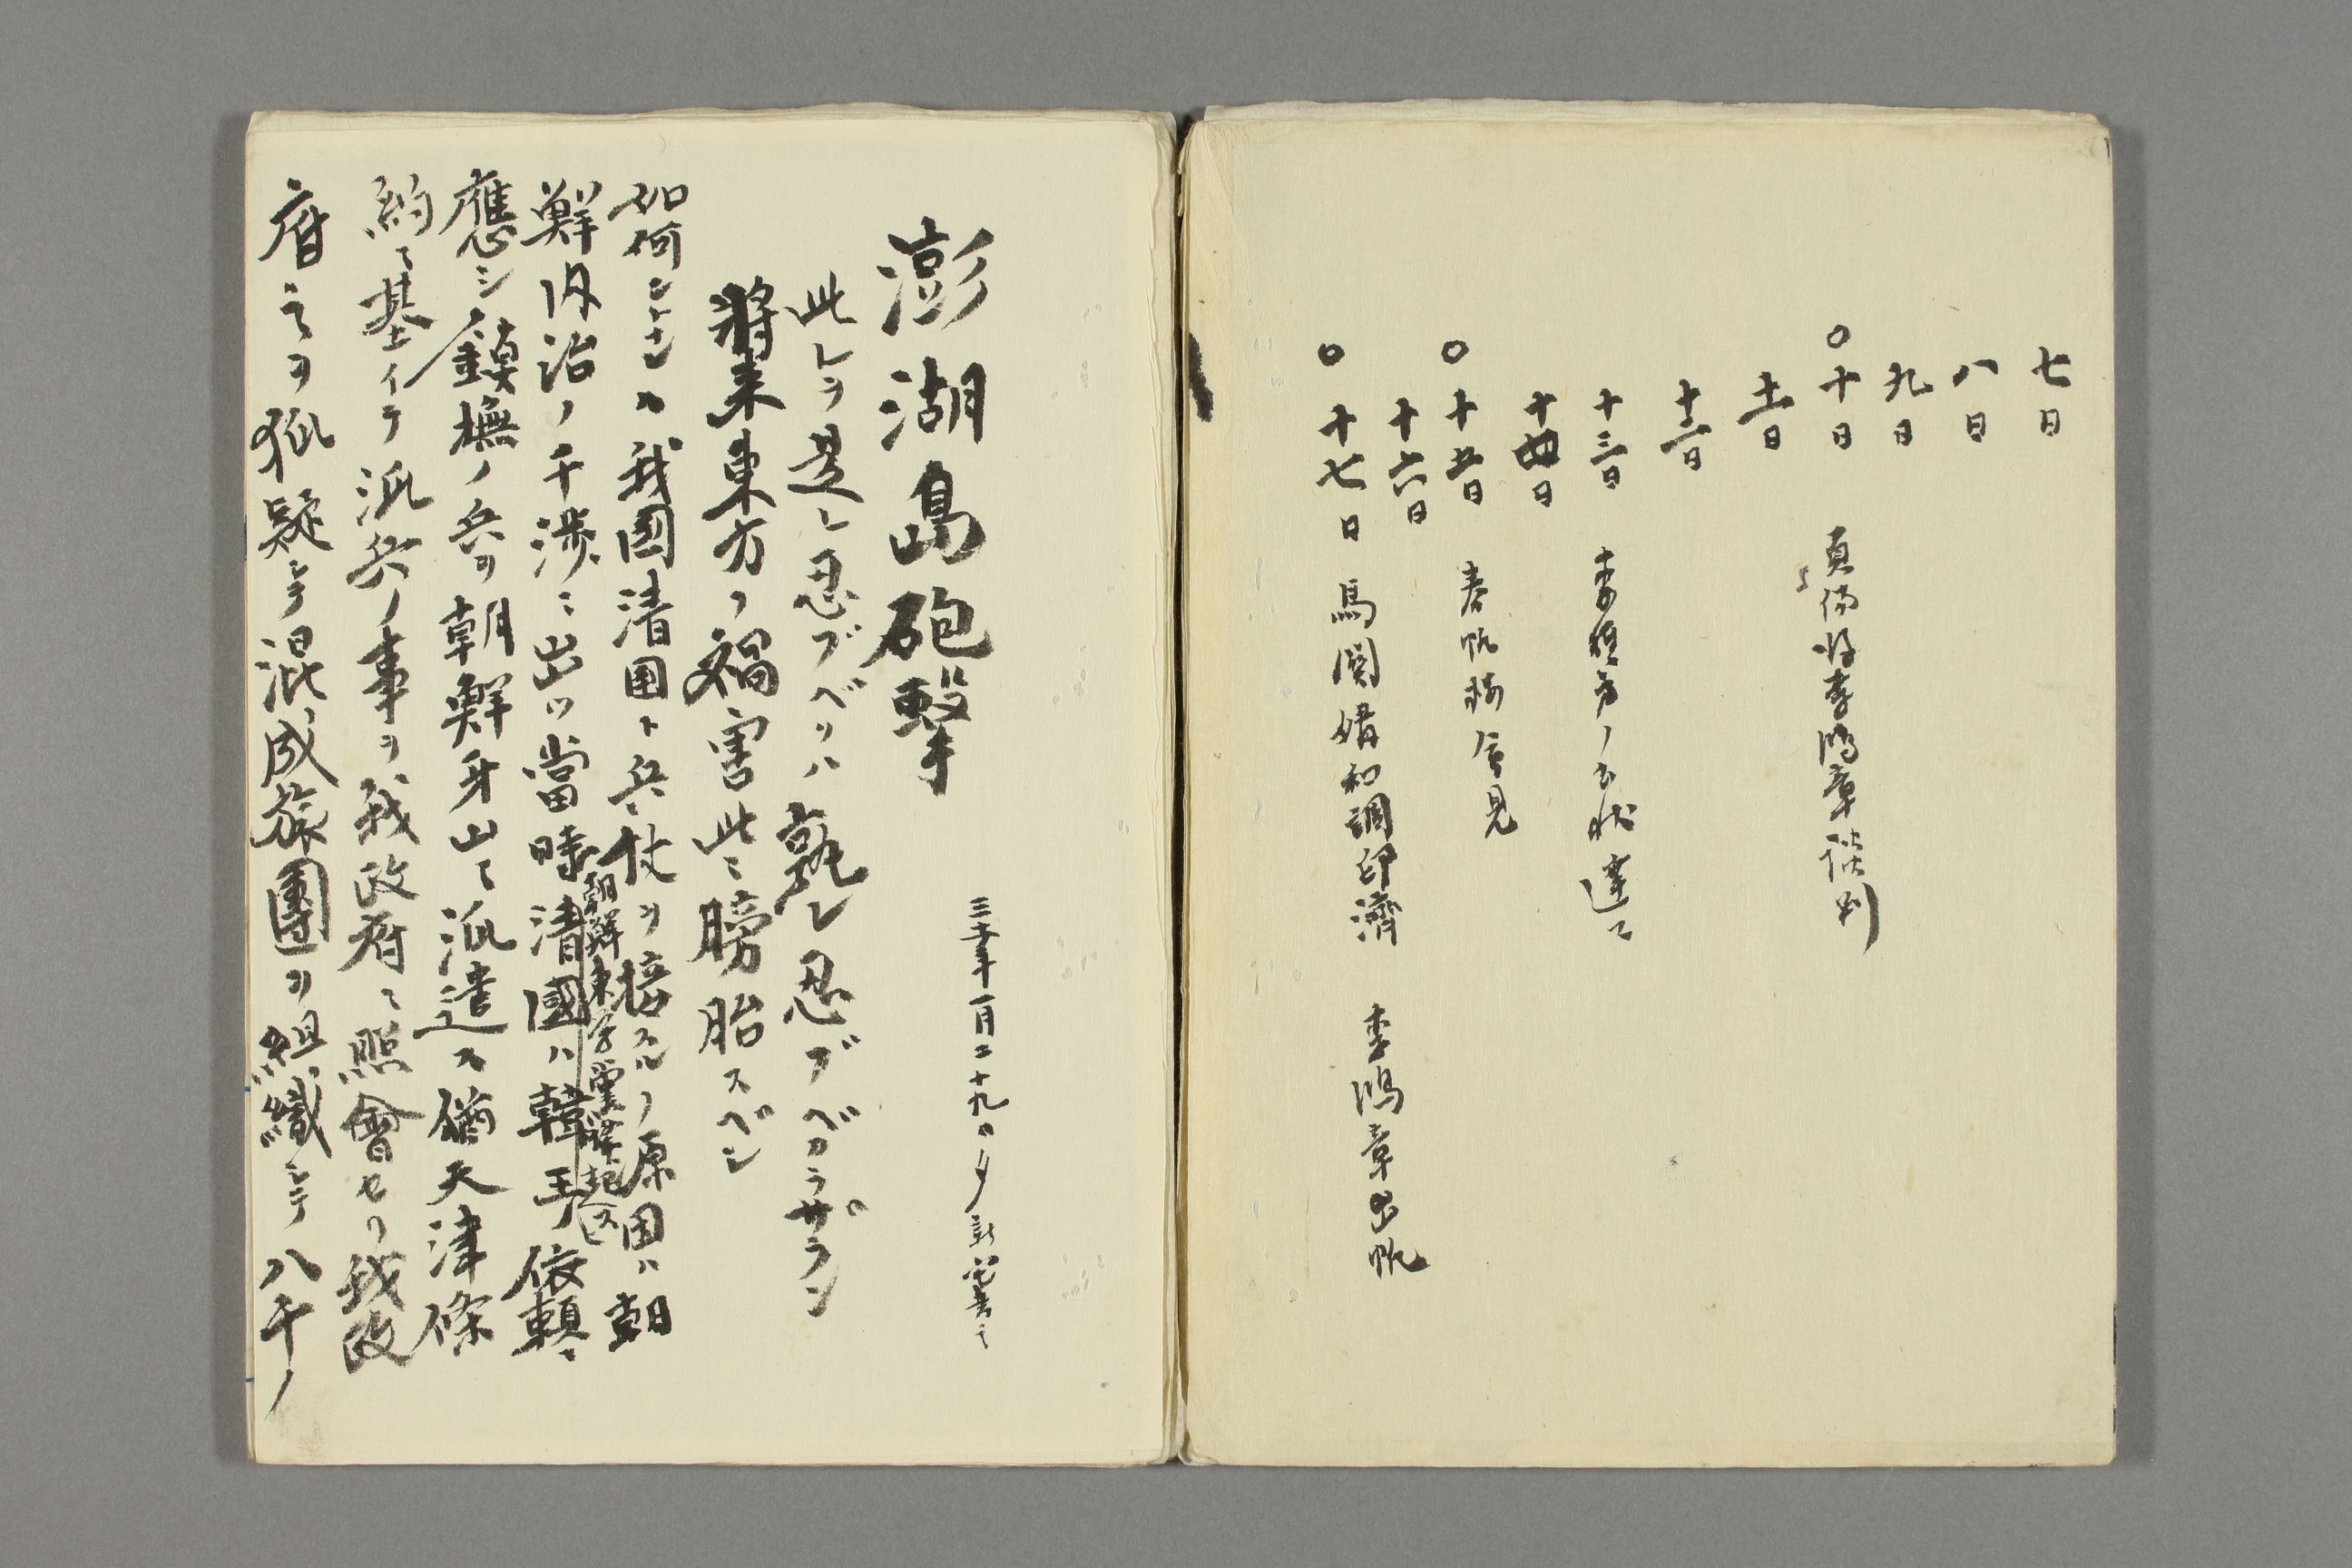 七日
八日
九日
○十日 負傷後李鴻章談判
十一日
十二日
十三日 李経方ノ
十四日
○十五日 春帆楼會見
十六日
○十七日 馬関媾和調印濟 李鴻章出帆
澎湖島砲撃
三十年一月二十九日夕
此レヲ是レ忍ブベクハ孰レ忍ブベカラザラン
将来東方ノ禍害此ニ膀胎スベシ
如何ントナレハ我国清国ト兵仗ヲ接スルノ原因ハ朝
朝鮮東学党蜂起ス
鮮内治ノ干渉ニ出ツ當時清國ハ韓王ノ依頼ニ
應シ鎮撫ノ兵ヲ朝鮮牙山ニ派遣ス猶天津條
約ニ基イテ派兵ノ事ヲ我政府ニ照會セリ我政
府之ヲ狐疑シテ混成旅團ヲ組織シテ八千ノ